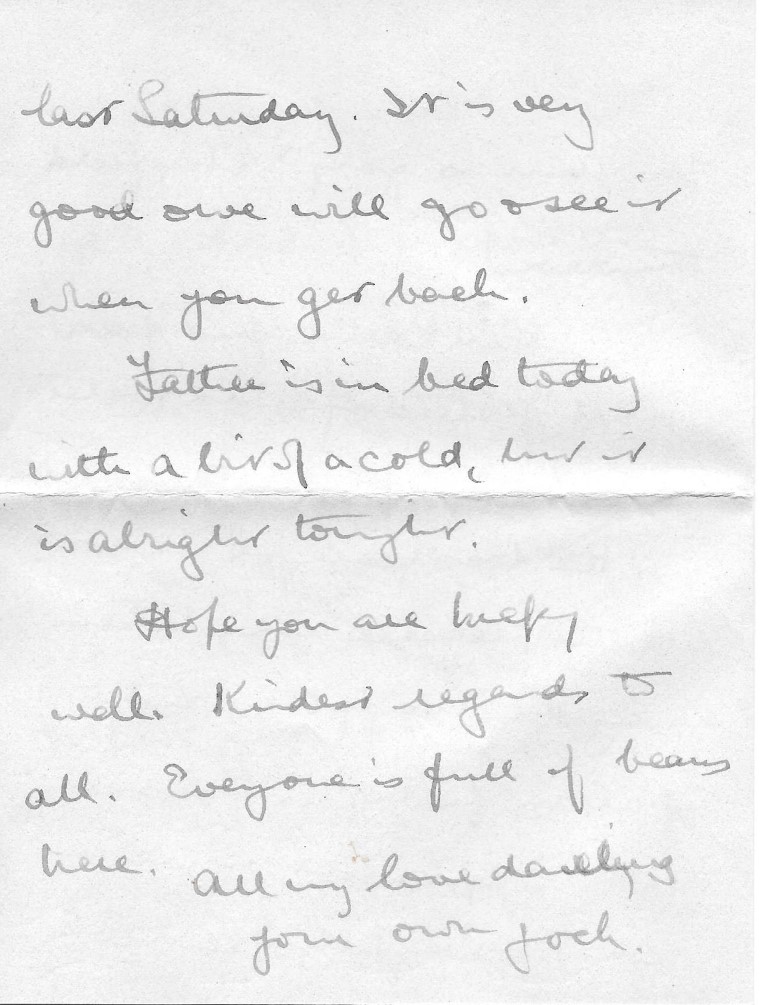 last Saturday. It is very
good & we will go & see it
when you get back.
Father is in bed today
with a bit of a cold, but it
is alright tonight.
Hope you are
well. Kindest regards to
all. Everyone is full of beans
here. All my love darling
your own Jock.